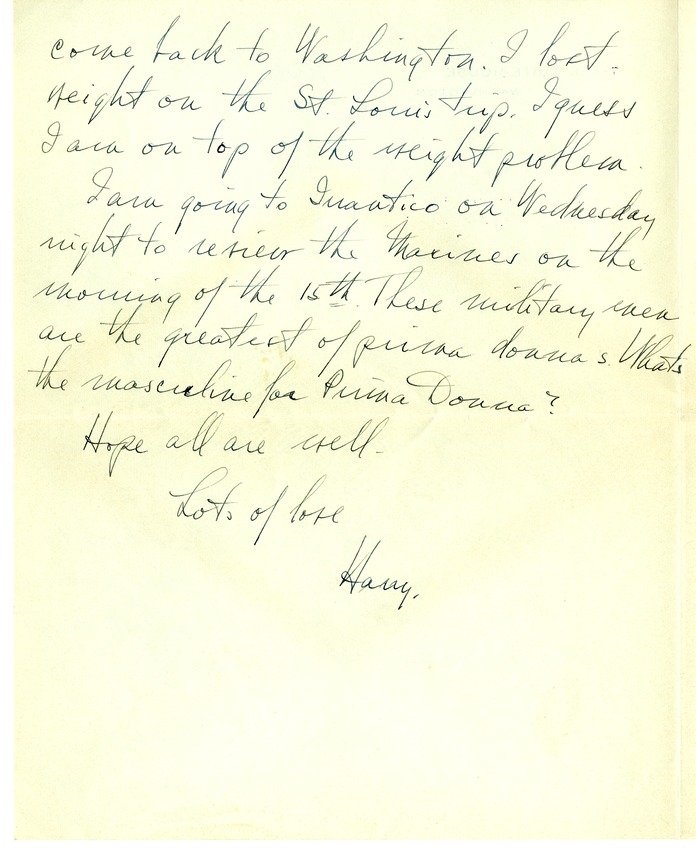 come back to Washington. I lost
weight on the St. Louis trip. I guess
I am on top of the weight problem.
I am going to Quantico on Wednesday
night to review the Marines on the
morning of the 15th. These military men
are the greatest of prima donnas. Whats
the masculine for Prima Donna?
Hope all are well.
Lots of love
Harry.